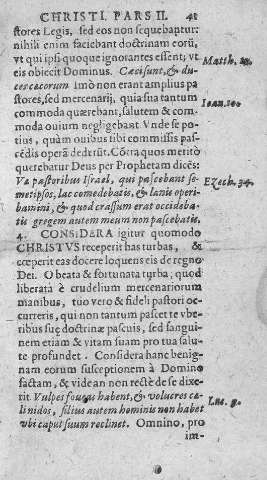 CHRISTI. PARS II. 41
stores Legis, sed eos non sequebaptur:
nihili enim faciebant doctrinam eorũ,
vt qui ipsi quoque ignorantes essent; vt
eis obiecit Dominus. Cæci sunt, & du- Matth. 12.
ces cæcorum Imò non erant amplius pa
stores, sed mercenarij, quia sua tantum
commoda quærebant, salutem & com- Ioan. 10.
moda ouium negligebant Vnde se po-
tius, quàm ouibus sibi commissis pas-
cēdis operã dederũt. Cõtra quos meritò
querebatur Deus per Prophetam dicēs:
Væ pastoribus Israel, qui pascebant se- Ezech. 34.
metipsos, lac comedebatis, & lanis operi-
bamini, & quod crassum erat occideba-
tis gregem autem meum non pascebatis.
4. CONSIDERA igitur quomodo
CHRISTVS receperit has turbas, &
cœperit eas docere loquens eis de regno
Dei. O beata & fortunata turba, quod
liberata è crudelium mercenariorum
manibus, tuo vero & fideli pastori oc-
curreris, qui non tantum pascet te vbe-
ribus suę doctrinæ pascuis, sed sangui-
nem etiam & vitam suam pro tua salu-
te profundet. Considera hanc benig-
nam eorum susceptionem à Domino
factam, & vide an non rectè de se dixe-
rit Vulpes foueas habent, & volucres cæ-
li nidos, filius autem hominis non habet Luc. 9.
vbi caput suum reclinet. Omnino, pro
im-